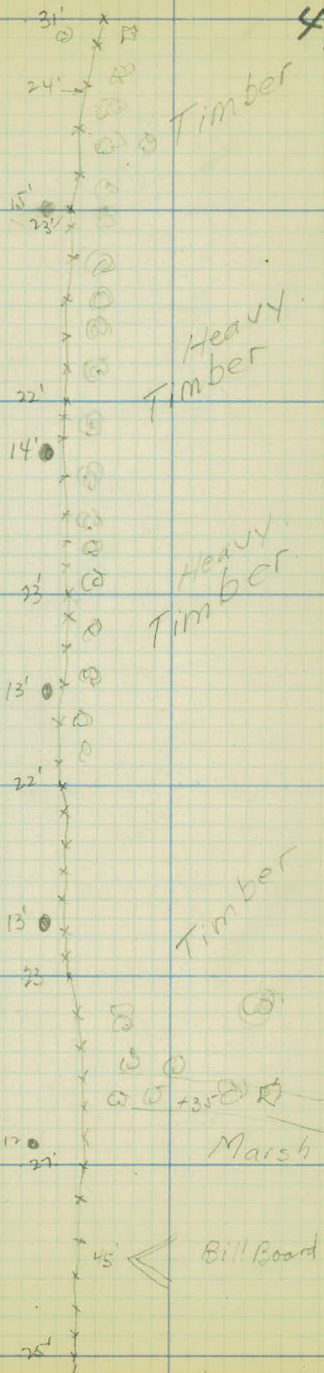 31'
4
24'
Timber
15'
23'
Heavy
Timber
22'
14'
Heavy
Timber
23'
13'
22'
Timber
13'
23
+35
Marsh
12
27'
45'
Bill Board
25'